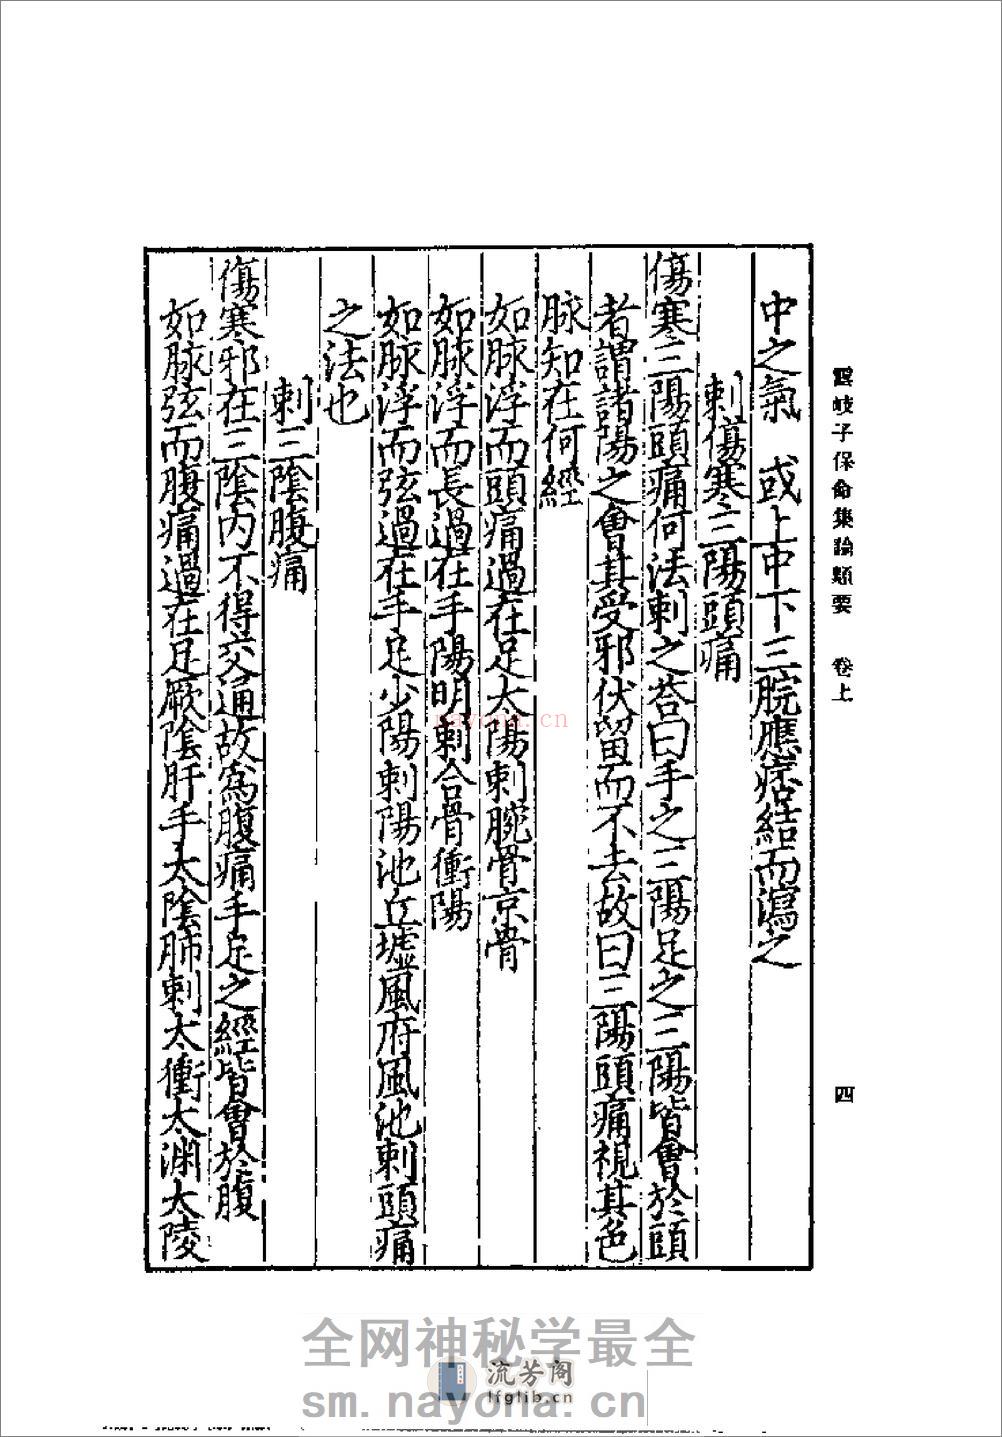 雲岐子保命集論類要 卷上
四
中之氣 或上中下三脘應痞結而瀉之
刺傷寒三陽頭痛
傷寒三陽頭痛何法刺之荅曰手之三陽足之三陽皆會於頭
者謂諸陽之會其受邪伏留而不去故曰三陽頭痛視其色
脉知在何經
如脉浮而頭痛過在足太陽刺腕骨京骨
如脉浮而長過在手陽明刺合骨衝陽
如脉浮而弦過在手足少陽刺陽池丘墟風府風池刺頭痛
之法也
刺三陰腹痛
傷寒邪在三陰內不得交通故爲腹痛手足之經皆會於腹
如脉弦而腹痛過在足厥陰肝手太陰肺刺太衝太淵太陵
nayona.cn
全网神秘学最全
流芳阁
lfglib.cn
sm.nayona.cn